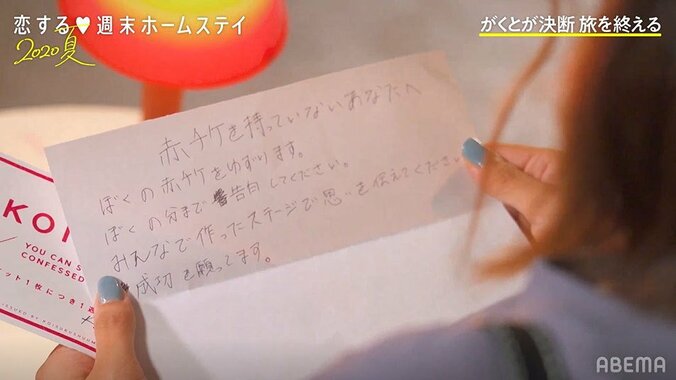 恋する♥週末ホームステイ
2020夏
がくとが決断 旅を終える
赤チケを持っていないあなたへ
ぼくの赤チケをゆずります。
ぼくの分まで告白してください。
みんなで作ったステージで思いを伝えてください
成功を願ってます。
KOI
YOU CAN S
CONFESSED
ット1枚につき1
ABEMA